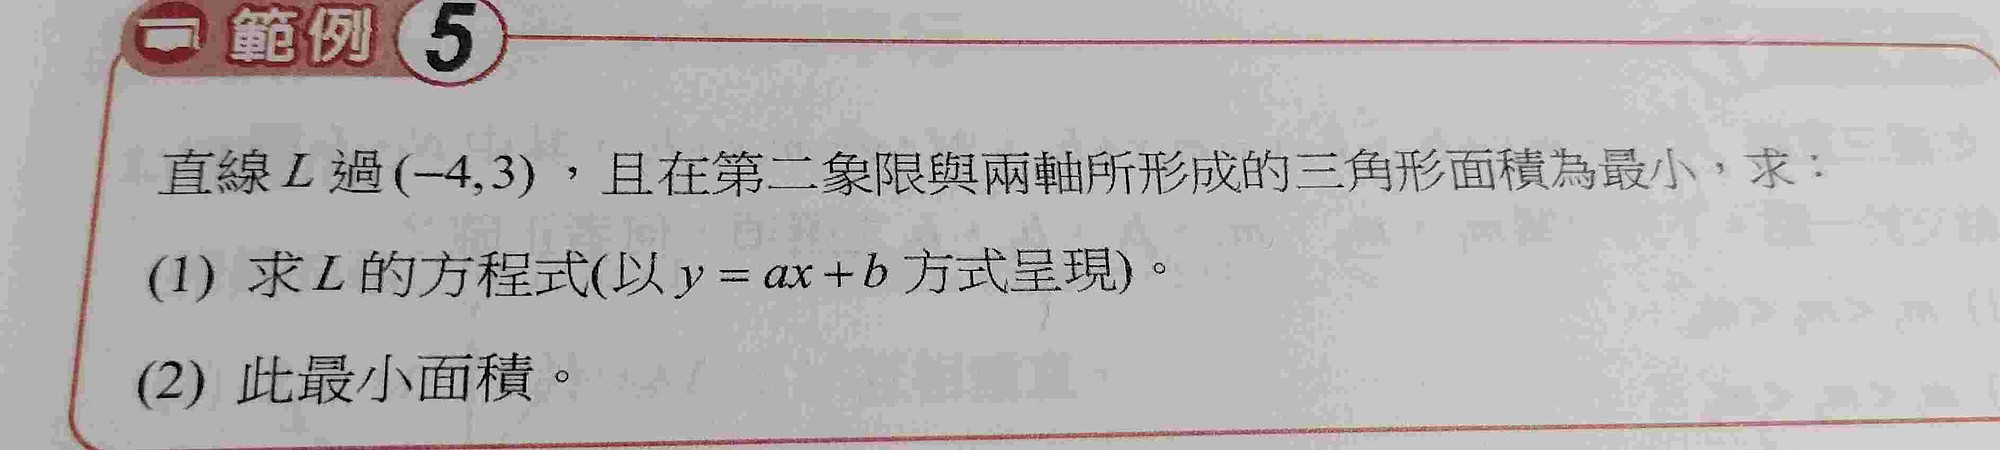 範例 5
直線 L 過(−4,3),且在第二象限與兩軸所形成的三角形面積為最小,求:
(1) 求 L 的方程式(以 y = ax + b 方式呈現)。
(2) 此最小面積。